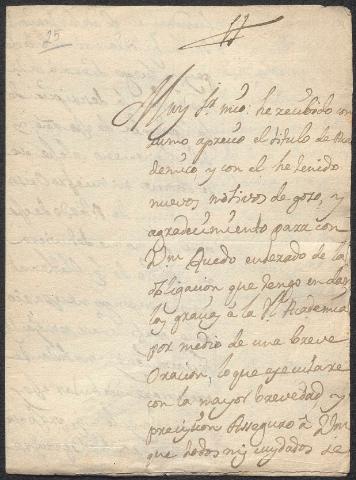 25
Muy Sr. mio: he recibido con
sumo aprecio el titulo de Aca
demico y con el he tenido
nuevos motivos de gozo, y
agradecimiento para con
Vm Quedo enterado de la
obligacion que tengo en dar
las gracias à la Rl. Academia
por medio de una breve
Oracion, lo que ejecutare
con la mayor brevedad, y
precision Asseguro à Vm
que todos mis cuydados se